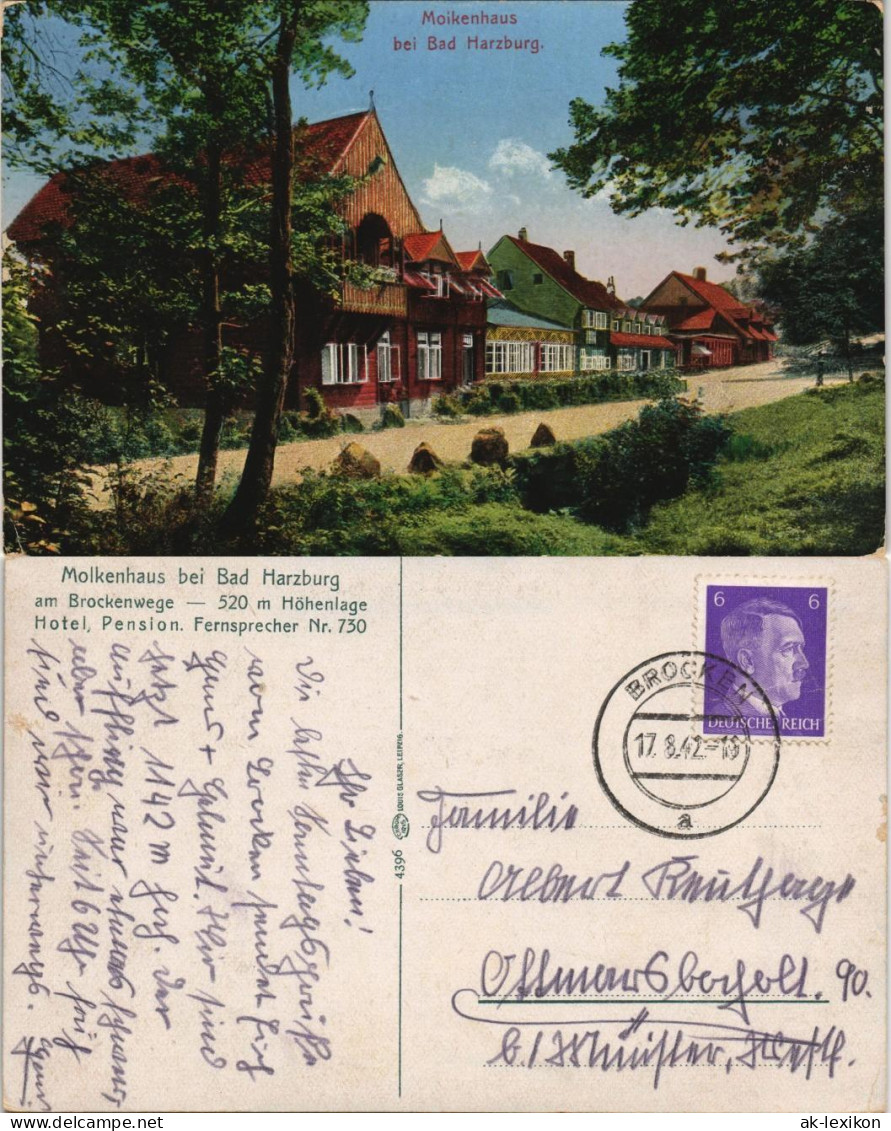 Molkenhaus
bei Bad Harzburg.
Molkenhaus bei Bad Harzburg
am Brockenwege — 520 m Höhenlage
Hotel, Pension. Fernsprecher Nr. 730
Ihr Lieben!
Die besten Sonntagsgrüße
vom Brocken sendet Euch
u. Helmut. Wir sind
jetzt 1142 m hoch. Der
Aufstieg war etwas schwer,
aber schön. Seit 6 Uhr früh
sind wir unterwegs.
4396
LOUIS GLASER, LEIPZIG.
6 6
DEUTSCHES REICH
BROCKEN
17.8.42.-18
a
Familie
Albert
Ottmarsbocholt. 90.
b./Münster, Westf.
ak-lexikon